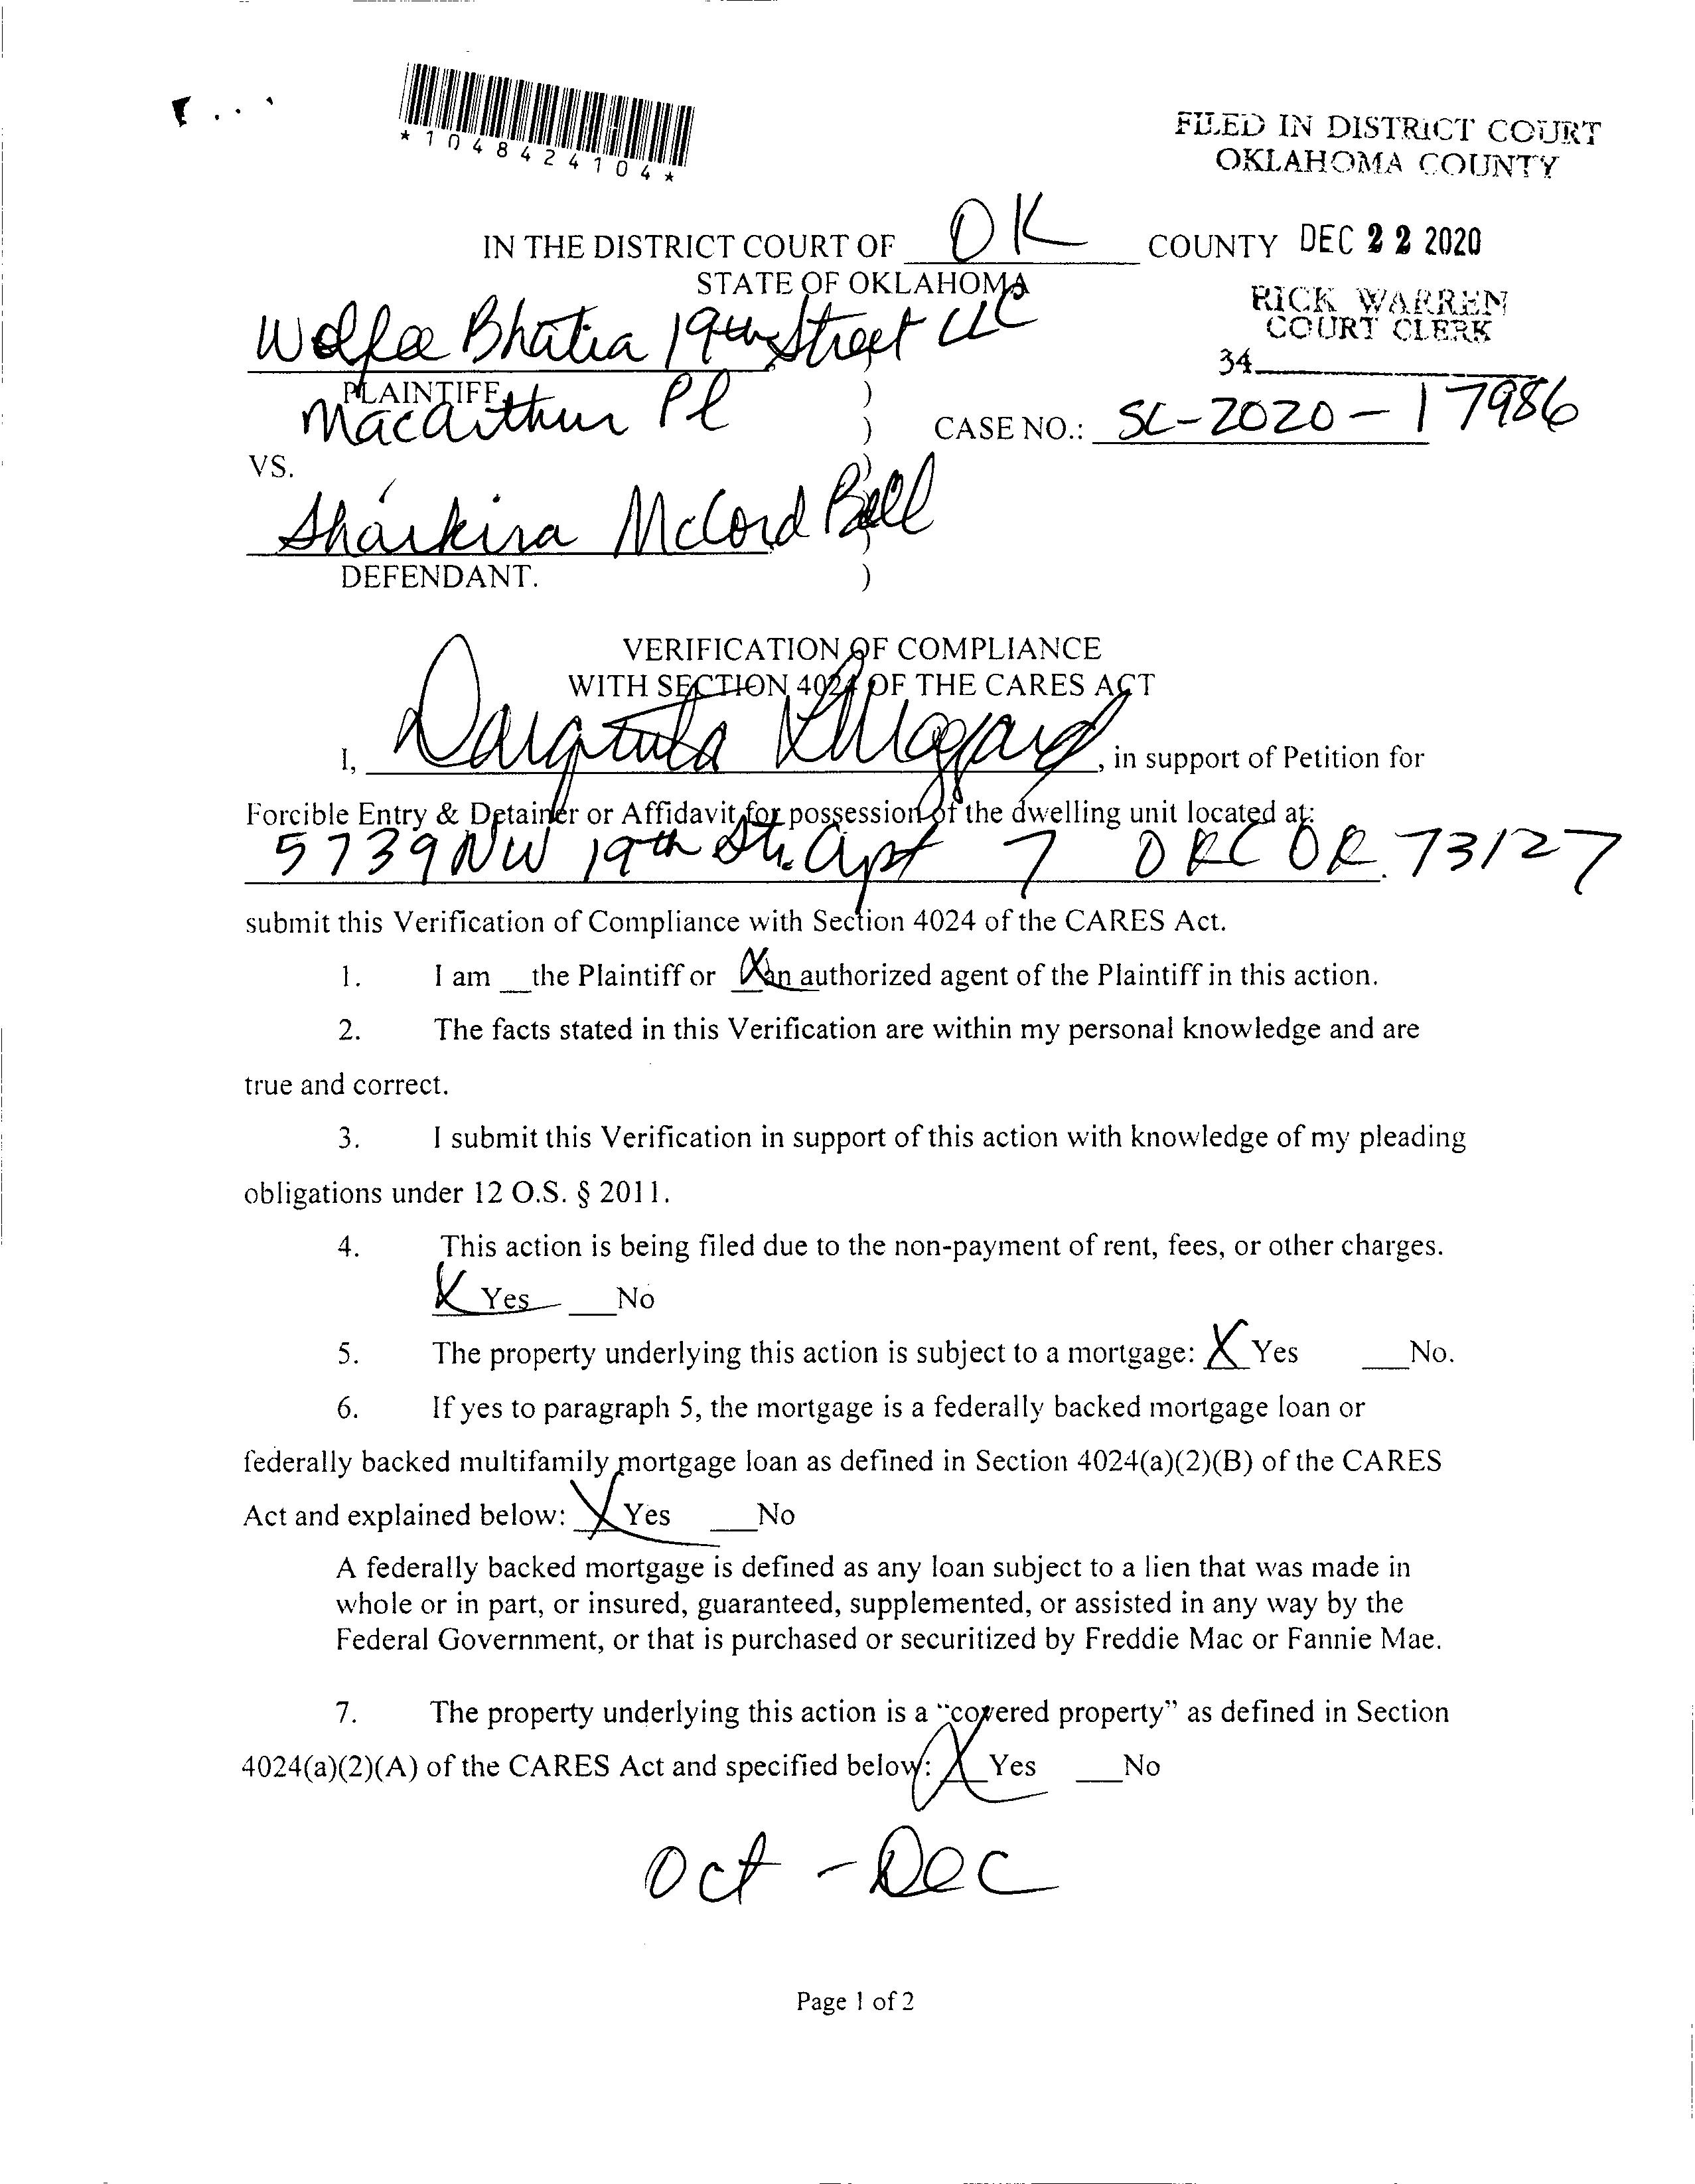 *1048424104*
FILED IN DISTRICT COURT
OKLAHOMA COUNTY
IN THE DISTRICT COURT OF OK COUNTY DEC 22 2020
STATE OF OKLAHOMA
RICK WARREN
COURT CLERK
34
Wolfee Bhatia 19th Street LLC )
PLAINTIFF, )
Macarthur Pl )
CASE NO.: SC-2020-17986
VS. )
Sharkira McCord Bell )
DEFENDANT. )
VERIFICATION OF COMPLIANCE
WITH SECTION 4024 OF THE CARES ACT
I, , in support of Petition for
Forcible Entry & Detainer or Affidavit for possession of the dwelling unit located at:
5739 NW 19th St. Apt 7 OKC OK. 73127
submit this Verification of Compliance with Section 4024 of the CARES Act.
1. I am __the Plaintiff or X an authorized agent of the Plaintiff in this action.
2. The facts stated in this Verification are within my personal knowledge and are
true and correct.
3. I submit this Verification in support of this action with knowledge of my pleading
obligations under 12 O.S. § 2011.
4. This action is being filed due to the non-payment of rent, fees, or other charges.
X Yes ___No
5. The property underlying this action is subject to a mortgage: X Yes ___No.
6. If yes to paragraph 5, the mortgage is a federally backed mortgage loan or
federally backed multifamily mortgage loan as defined in Section 4024(a)(2)(B) of the CARES
Act and explained below: X Yes ___No
A federally backed mortgage is defined as any loan subject to a lien that was made in
whole or in part, or insured, guaranteed, supplemented, or assisted in any way by the
Federal Government, or that is purchased or securitized by Freddie Mac or Fannie Mae.
7. The property underlying this action is a “covered property” as defined in Section
4024(a)(2)(A) of the CARES Act and specified below: X Yes ___No
Oct - Dec
Page 1 of 2